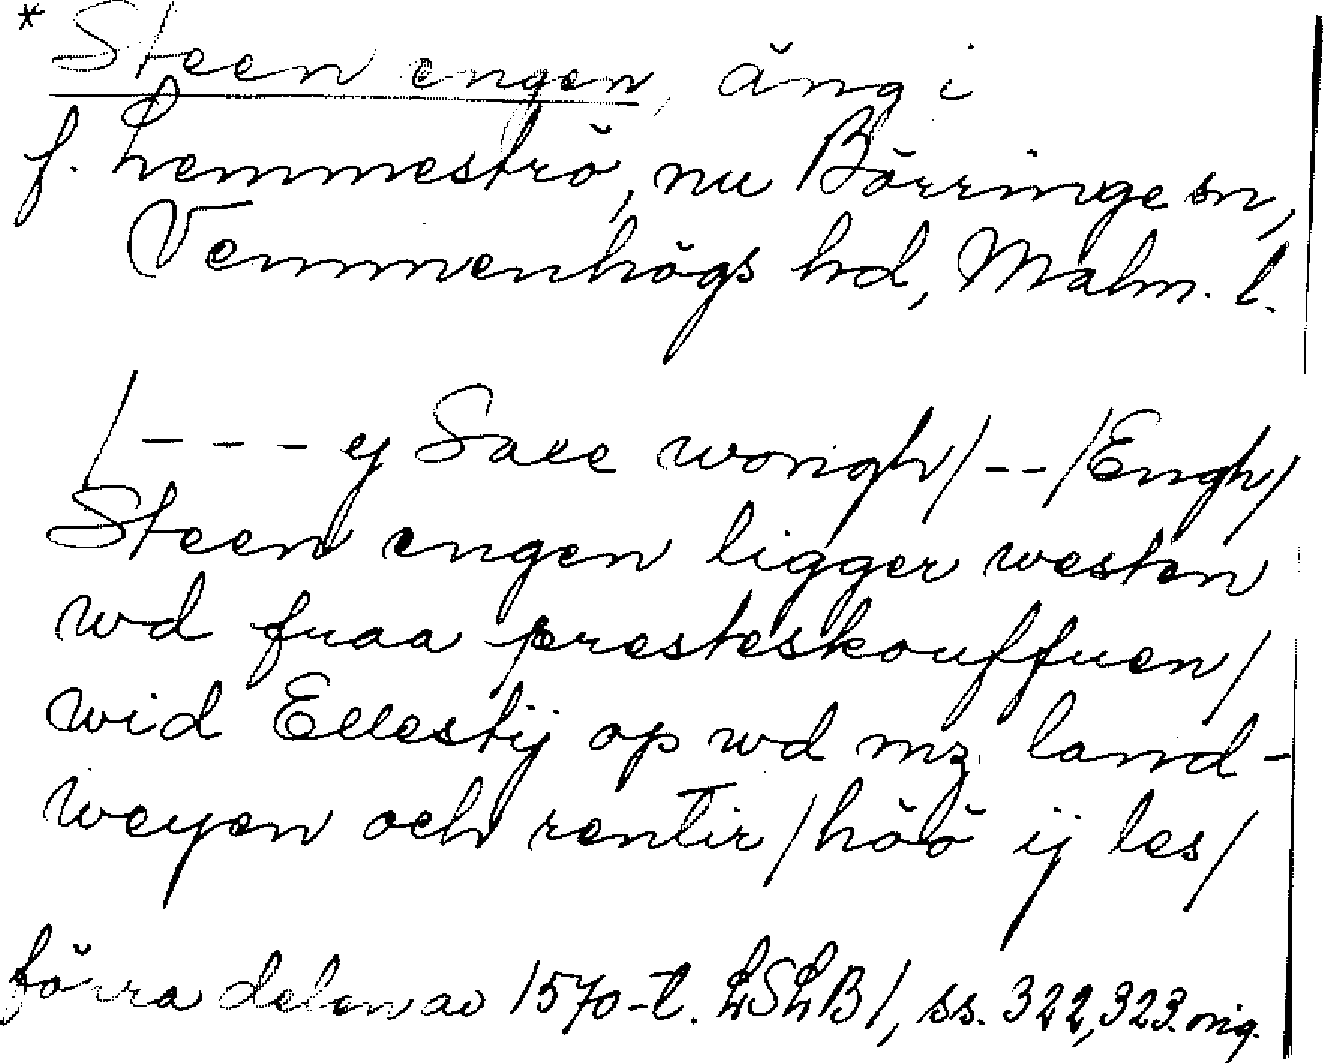 * Steen engen, äng i
f. Lemmeströ, nu Börringe sn,
Vemmenhögs hd, Malm. l.
/- - - ej Saee wongh/--/Engh/
Steen engen ligger westen
wd fraa presteskouffuen/
wid Ellestij op wd mz land-
weyen och rentir/höö ij les/
förra delen av 1570-t. LSLB1, ss. 322,323 orig.